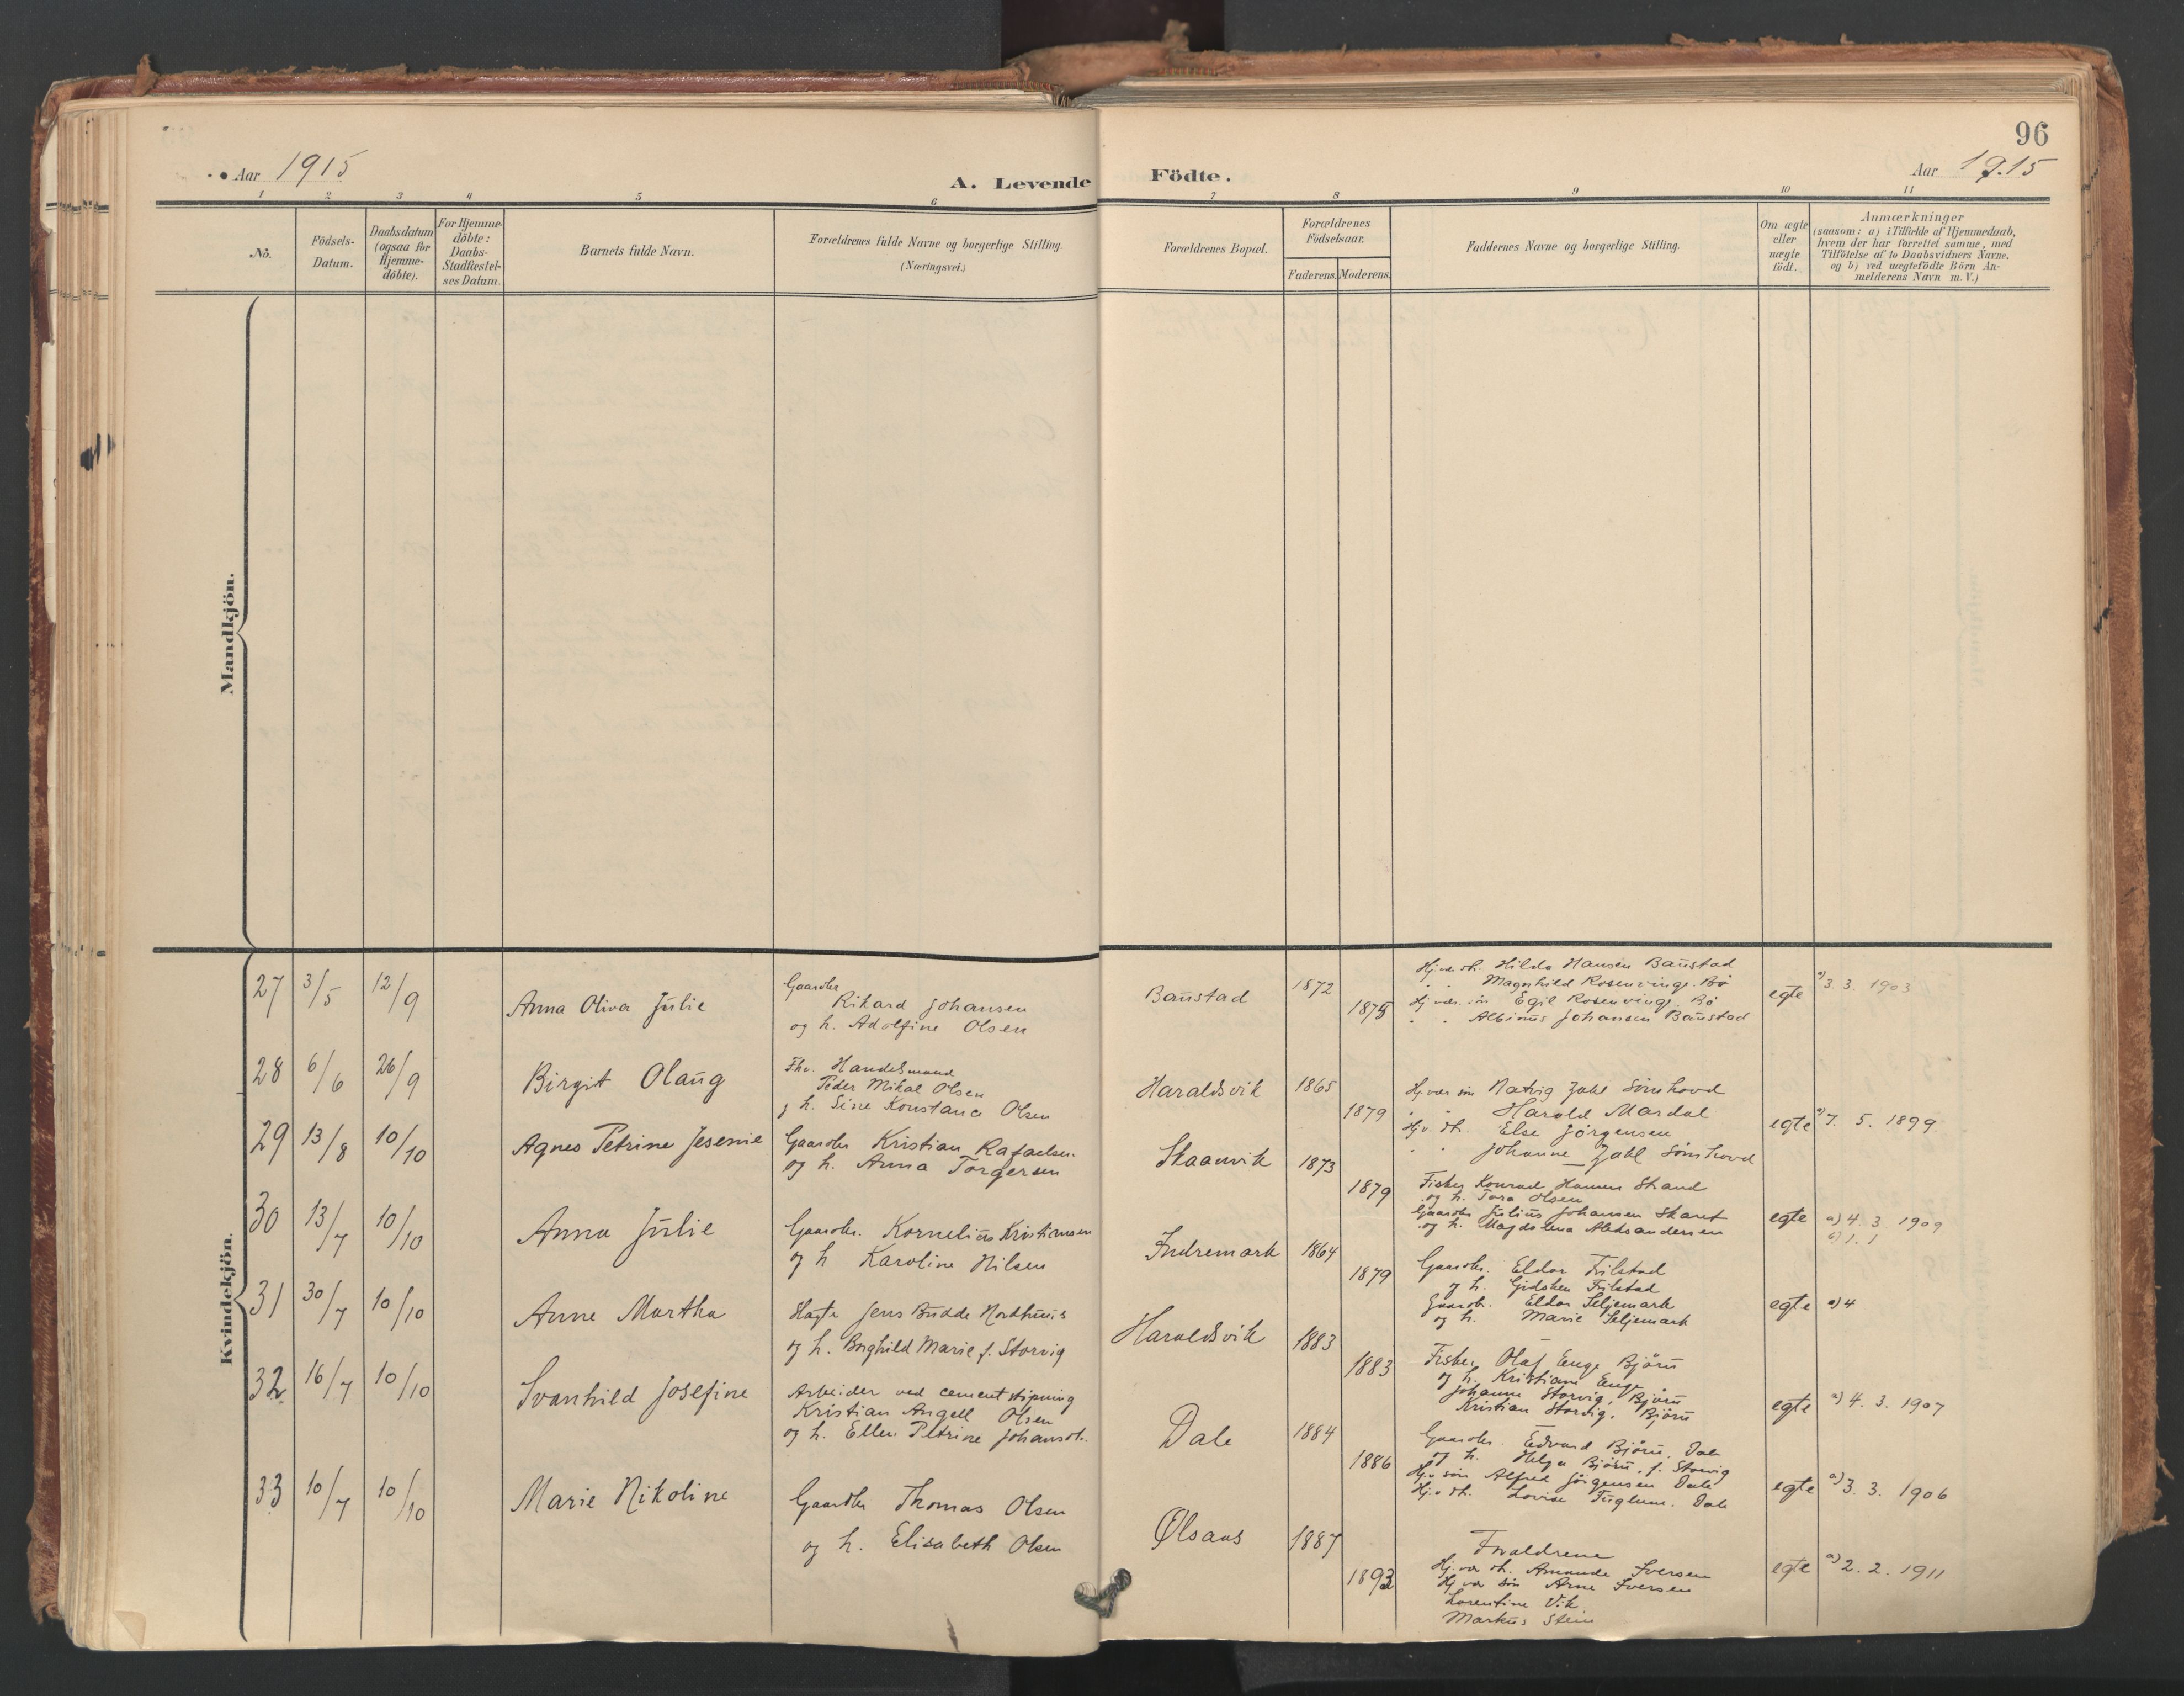 96
Aar 1915
A. Levende Födte.
Aar 1915
1 2 3 4 5 6 7 8 9 10 11
No.
Födsels-Datum.
Daabsdatum (ogsaa for Hjemme-döbte).
For Hjemme-döbte: Daabs-Stadfæstel-ses Datum.
Barnets fulde Navn.
Forældrenes fulde Navne og borgerlige Stilling. (Næringsvei.)
Forældrenes Bopæl.
Forældrenes Födselsaar.
Faderens. Moderens.
Faddernes Navne og borgerlige Stilling.
Om ægte eller uægte födt.
Anmærkninger
(saasom: a) i Tilfælde af Hjemmedaab,
hvem der har forrettet samme, med
Tilföielse af to Daabsvidners Navne,
og b) ved uægtefödte Börn An-
melderens Navn m. V.)
Mandkjön.
Kvindekjön.
27 3/5 12/9 Anna Oliva Julie
Gaardbr
Rikard Johansen
og h. Adolfine Olsen
Baustad 1872 1875
Hj.v. dt. Hilda Hansen Baustad
" " Magnhild Rosenvinge. Bø
Hj.vær. søn Egil Rosenvinge. Bø
" " Albinus Johansen Baustad
egte a) 3. 3. 1903
28 6/6 26/9 Birgit Olaug
Fhv. Handelsmand
Peder Mikal Olsen
og h. Sine Konstance Olsen
Haraldsvik 1865 1879
Hj.vær søn Natvig Zahl Sømhovd
" " Harald Mardal
Hj.v. dt. Else Jörgensen
" " Johanne Zahl Sømhovd
egte a) 7. 5. 1899
29 13/8 10/10 Agnes Petrine Jesenie
Gaardbr Kristian Rafaelsen
og h. Anna Torgersen
Skaanvik 1873 1879
Fisker Konrad Hansen Strand
og h. Tora Olsen
Gaardbr Julius Johansen Skaret
og h. Magdalena Aleksandersen
egte a) 4. 3 1909
b) 1. 1
30 13/7 10/10 Anna Julie
Gaardbr. Kornelius Kristiansen
og h Karoline Nilsen
Indremark 1864 1879
Gaardbr. Eldor Frilstad
og h. Gidsken Frilstad
Gaardbr. Eldor Seljemark
og h. Marie Seljemark
egte a) 4
31 30/7 10/10 Anne Martha
Jens Budde Northuus
og h. Borghild Marie f. Storvig
Haraldsvik 1883 1883
Fisker Olaf Enge Bjørn
og h. Kristiane Enge
Johanne Storvig, Bjørn
Kristian Storvig, Bjørn
egte a) 4. 3. 1907
32 16/7 10/10 Svanhild Josefine
Arbeider ved cementstøpning
Kristian Angell Olsen
og h. Ellen Petrine Johansdt.
Dale 1884 1886
Gaardbr. Edvard Bjørn. Dale
og h. Helga Bjørn. f. Storvig
Hj.v søn Alfred Jörgensen Dale
Hj.v dt. Lovise Fuglum. Dale
egte a) 3. 3. 1906
33 10/7 10/10 Marie Nikoline
Gaardbr Thomas Olsen
og h. Elisabeth Olsen
Ølsaas 1887 1893
Forældrene
Hj.vær dt. Amanda Iversen
Hj vær søn Arne Iversen
Lorentine Vik
Markus Stein
egte a) 2. 2. 1911